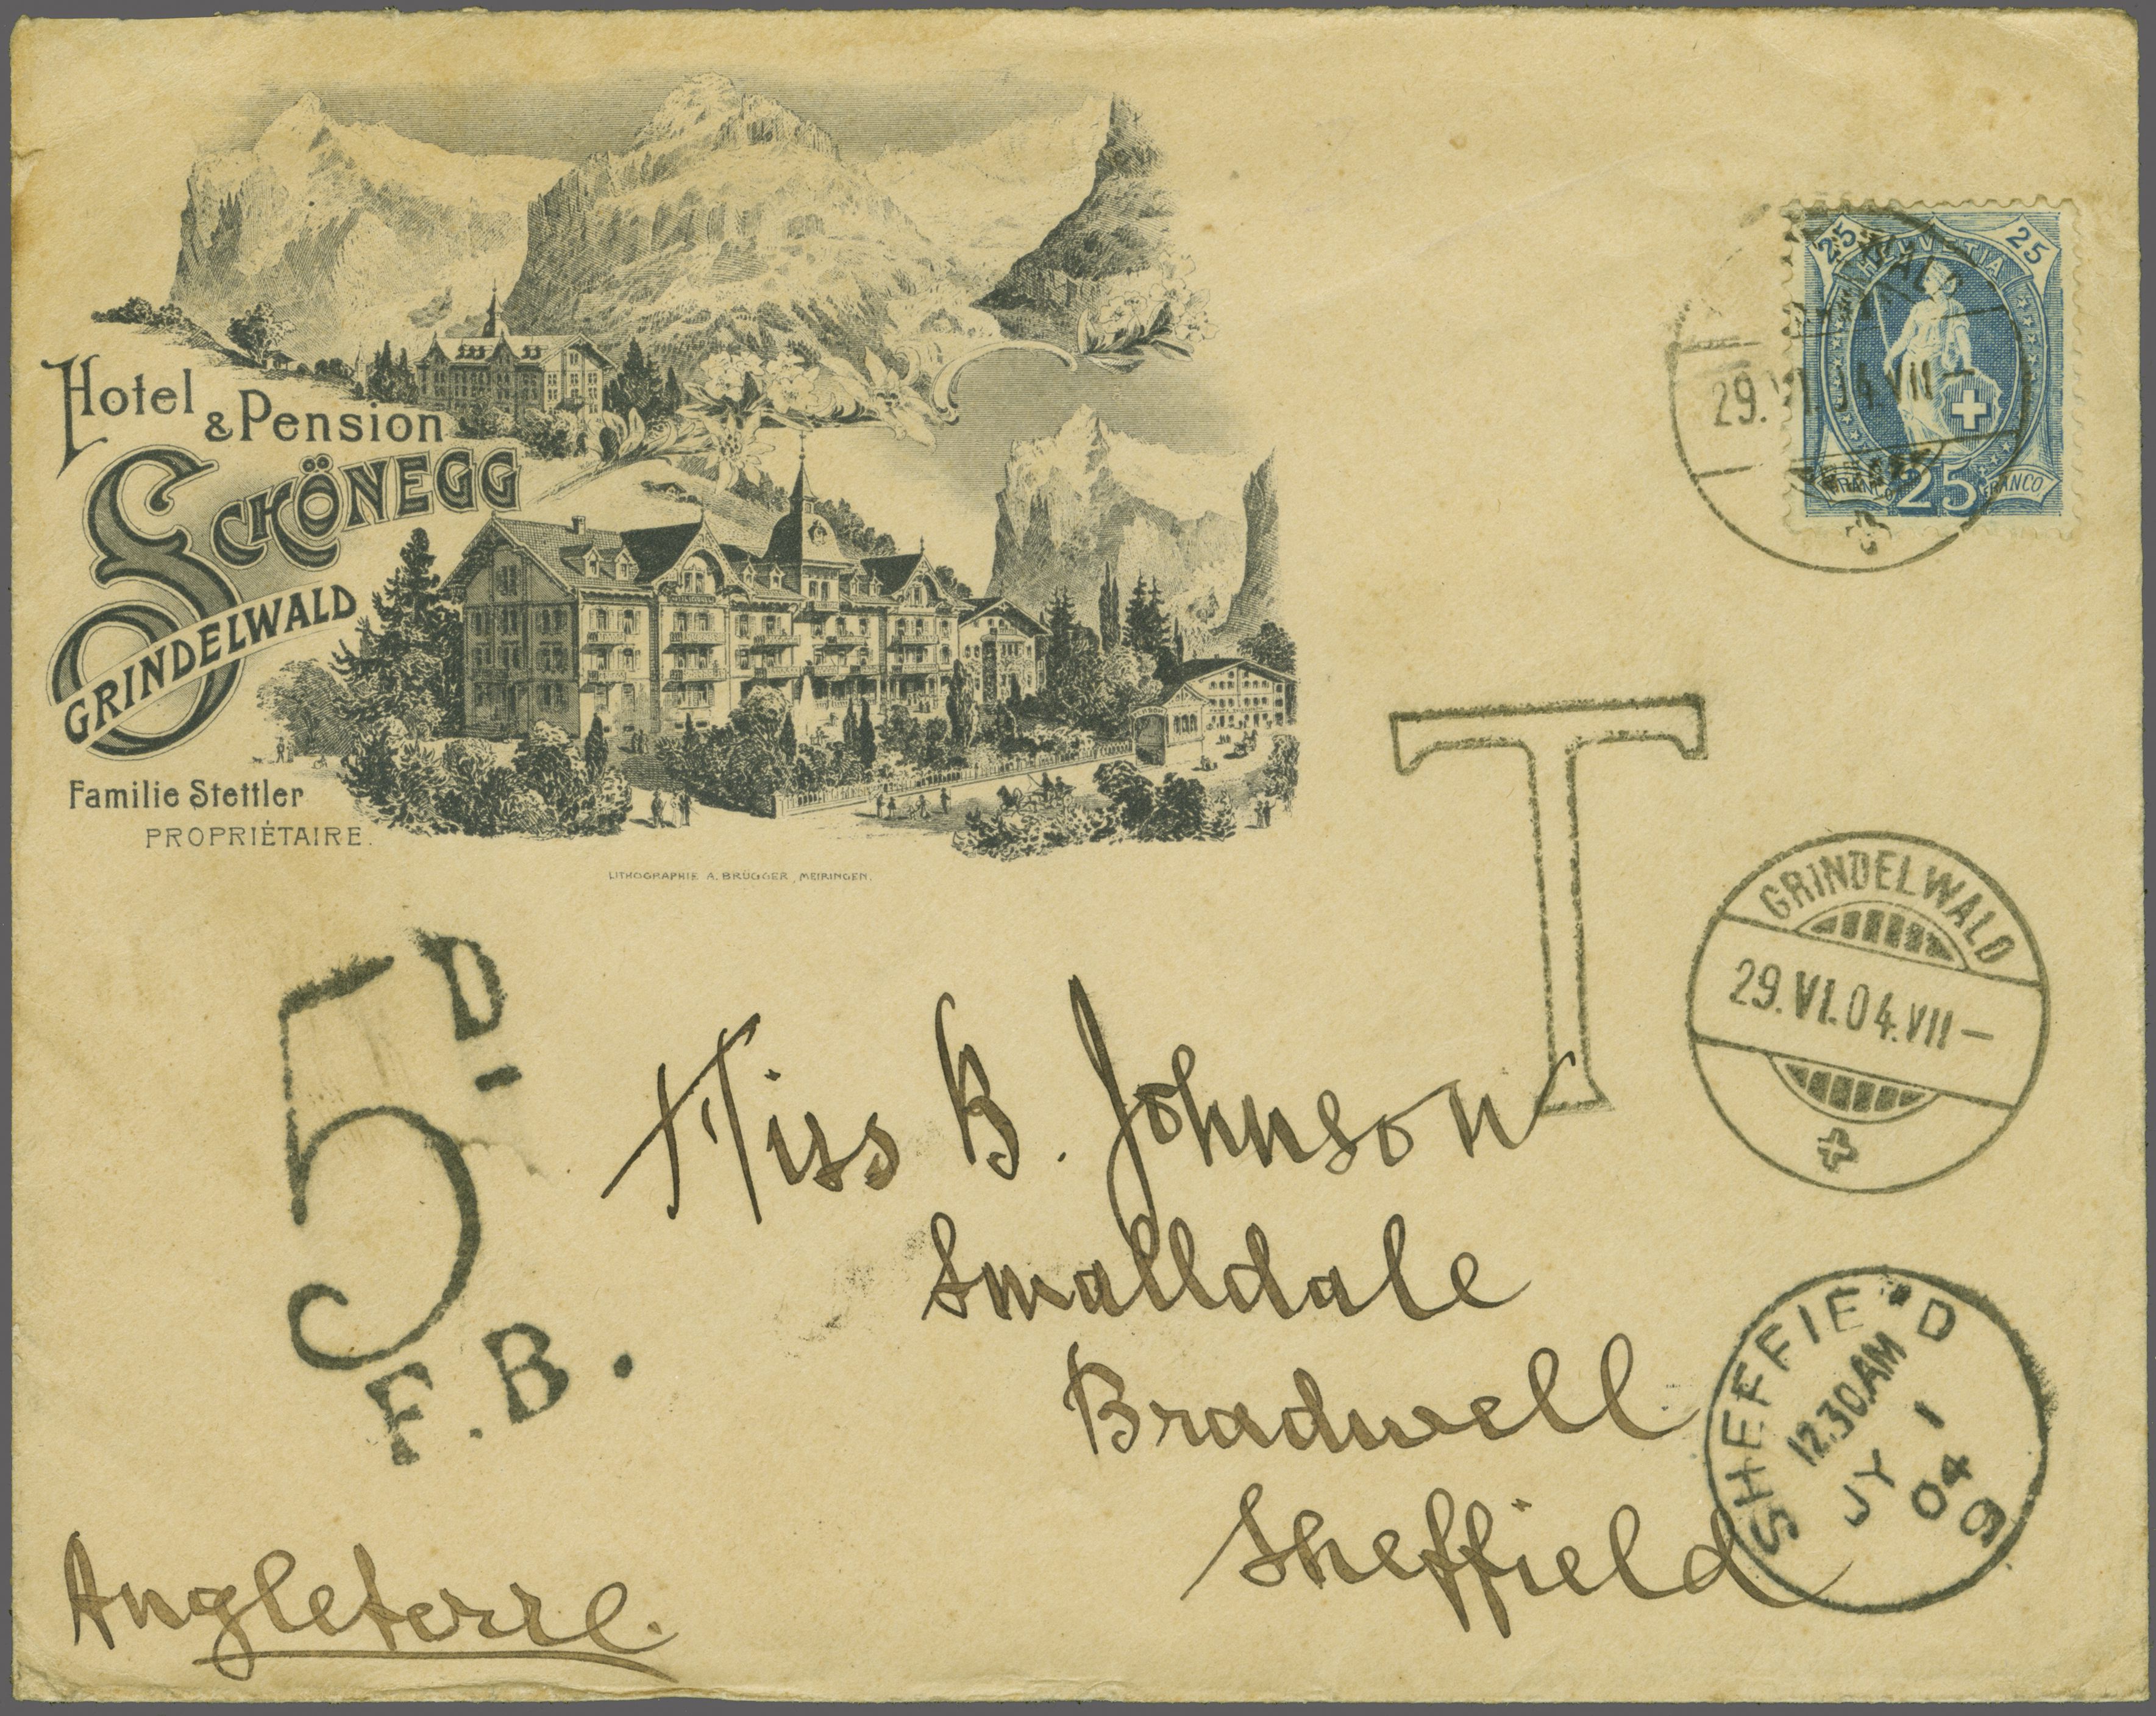 Hotel
& Pension
SCHÖNEGG
GRINDELWALD
Familie Stettler
PROPRIÉTAIRE.
LITHOGRAPHIE A. BRÜGGER, MEIRINGEN.
25 HELVETIA 25
29.VI.04.VII—
FRANCO 25 FRANCO
T
GRINDELWALD
29.VI.04.VII—
5D-
F.B.
Miss B. Johnson
Smalldale
Bradwell
Sheffield
Angleterre.
SHEFFIELD
12.30AM
JY 1
04